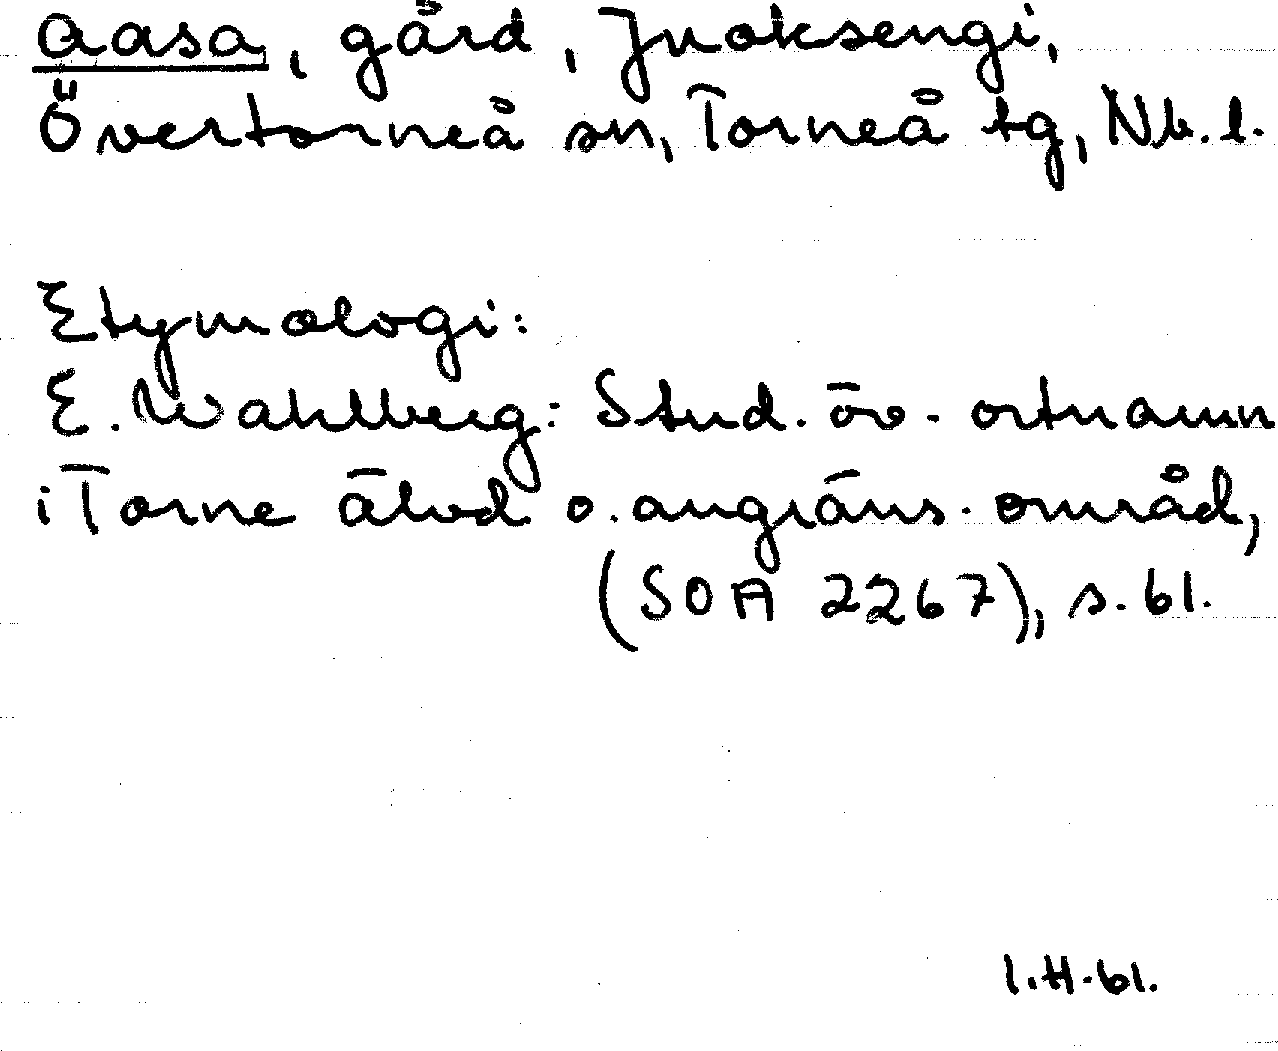 Aasa, gård, Juoksengi,
Övertorneå sn, Torneå tg, Nb. l.
Etymologi:
E. Wahlberg: Stud. öv. ortnamn
i Torne älvd o. angräns. områd,
(SOA 2267), s. 61.
I.H-61.